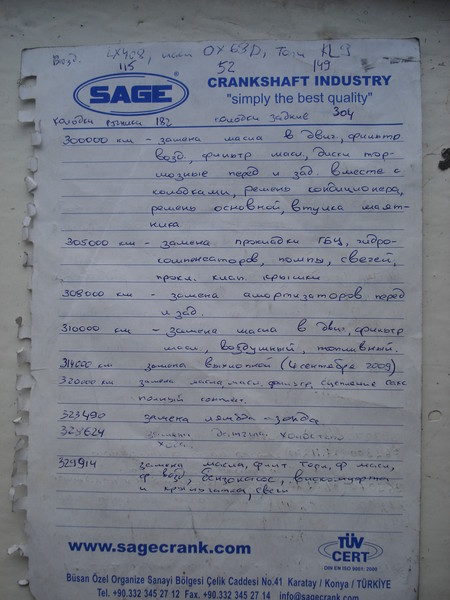 Возд. LX408, масл OX63D, Топл KL9
115 52 149
SAGE
CRANKSHAFT INDUSTRY
"simply the best quality"
колодки 182 колодки задние 304
300000 км - замена масла в двиг, фильтр
возд., фильтр масл, диски тор-
мозные перед и зад. вместе с
колодками, ремень кондиционера,
ремень основной, втулка маят-
ника.
305000 км - замена прокладки ГБЦ, гидро-
компенсаторов, помпы, свечей,
прокл. клап крышки
308000 км - замена амортизаторов перед
и зад.
310000 км - замена масла в двиг, фильтр
масл, воздушный, топливный.
314000 км замена выхлопной (4 сентября 2009)
320000 км замена масла, масл, фильтр, сцепление сакс
полный комплект.
323490 замена лямбда-зонда
325624 замена датчика холостого
хода.
329914 замена масла, филт топл, ф масл,
ф возд, бензонасос, вискомуфта
и крыльчатка, свечи
www.sagecrank.com
TÜV
CERT
DIN EN ISO 9001: 2000
Büsan Özel Organize Sanayi Bölgesi Çelik Caddesi No.41 Karatay / Konya / TÜRKİYE
Tel. +90.332 345 27 12 Fax. +90.332 345 27 14 info@sagecrank.com